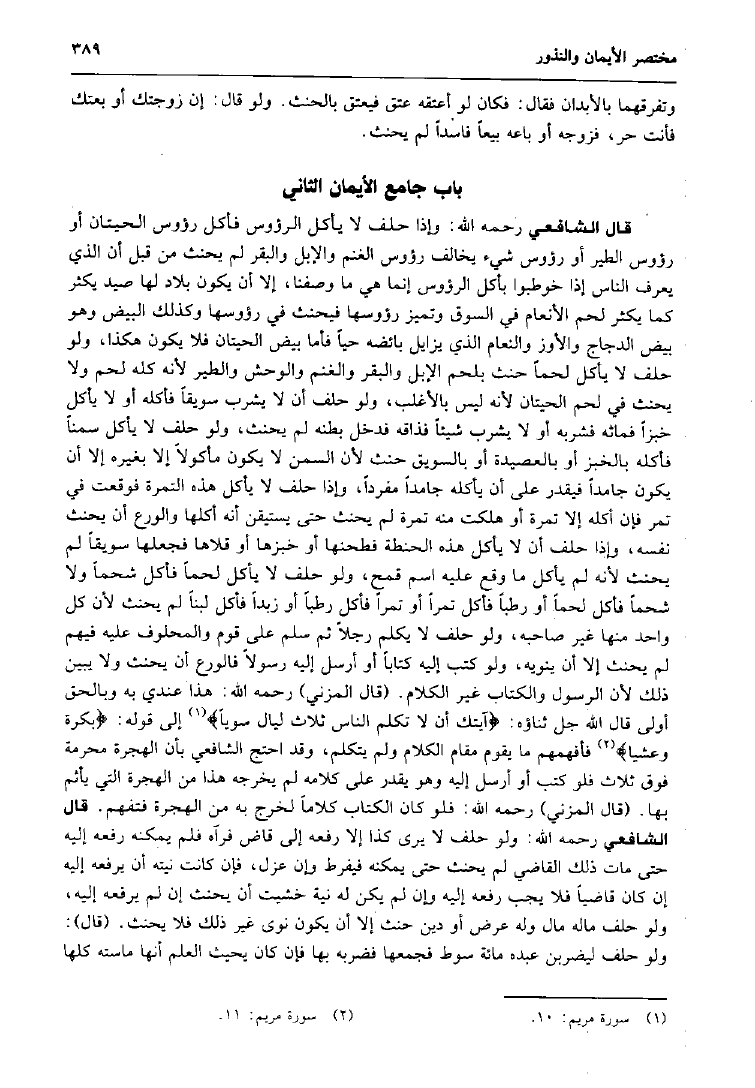 مختصر الأيمان والنذور ٣٨٩
وتفرقهما بالأبدان فقال: فكان لو أعتقه عتق فيعتق بالحنث. ولو قال: إن زوجتك أو بعتك
فأنت حر، فزوجه أو باعه بيعاً فاسداً لم يحنث.
باب جامع الأيمان الثاني
قال الشافعي رحمه الله: وإذا حلف لا يأكل الرؤوس فأكل رؤوس الحيتان أو
رؤوس الطير أو رؤوس شيء يخالف رؤوس الغنم والإبل والبقر لم يحنث من قبل أن الذي
يعرف الناس إذا خوطبوا بأكل الرؤوس إنما هي ما وصفنا، إلا أن يكون بلاد لها صيد يكثر
كما يكثر لحم الأنعام في السوق وتميز رؤوسها فيحنث في رؤوسها وكذلك البيض وهو
بيض الدجاج والأوز والنعام الذي يزايل بائضه حياً فأما بيض الحيتان فلا يكون هكذا، ولو
حلف لا يأكل لحماً حنث بلحم الإبل والبقر والغنم والوحش والطير لأنه كله لحم ولا
يحنث في لحم الحيتان لأنه ليس بالأغلب، ولو حلف أن لا يشرب سويقاً فأكله أو لا يأكل
خبزاً فماثه فشربه أو لا يشرب شيئاً فذاقه فدخل بطنه لم يحنث، ولو حلف لا يأكل سمناً
فأكله بالخبز أو بالعصيدة أو بالسويق حنث لأن السمن لا يكون مأكولاً إلا بغيره إلا أن
يكون جامداً فيقدر على أن يأكله جامداً مفرداً، وإذا حلف لا يأكل هذه التمرة فوقعت في
تمر فإن أكله إلا تمرة أو هلكت منه تمرة لم يحنث حتى يستيقن أنه أكلها والورع أن يحنث
نفسه، وإذا حلف أن لا يأكل هذه الحنطة فطحنها أو خبزها أو قلاها فجعلها سويقاً لم
يحنث لأنه لم يأكل ما وقع عليه اسم قمح، ولو حلف لا يأكل لحماً فأكل شحماً ولا
شحماً فأكل لحماً أو رطباً فأكل تمراً أو تمراً فأكل رطباً أو زبداً فأكل لبناً لم يحنث لأن كل
واحد منها غير صاحبه، ولو حلف لا يكلم رجلاً ثم سلم على قوم والمحلوف عليه فيهم
لم يحنث إلا أن ينويه، ولو كتب إليه كتاباً أو أرسل إليه رسولاً فالورع أن يحنث ولا يبين
ذلك لأن الرسول والكتاب غير الكلام. (قال المزني) رحمه الله: هذا عندي به وبالحق
أولى قال الله جل ثناؤه: ﴿آيتك أن لا تكلم الناس ثلاث ليال سوياً﴾(١) إلى قوله: ﴿بكرة
وعشيا﴾(٢) فأفهمهم ما يقوم مقام الكلام ولم يتكلم، وقد احتج الشافعي بأن الهجرة محرمة
فوق ثلاث فلو كتب أو أرسل إليه وهو يقدر على كلامه لم يخرجه هذا من الهجرة التي يأثم
بها. (قال المزني) رحمه الله: فلو كان الكتاب كلاماً لخرج به من الهجرة فتفهم. قال
الشافعي رحمه الله: ولو حلف لا يرى كذا إلا رفعه إلى قاض فرآه فلم يمكنه رفعه إليه
حتى مات ذلك القاضي لم يحنث حتى يمكنه فيفرط وإن عزل، فإن كانت نيته أن يرفعه إليه
إن كان قاضياً فلا يجب رفعه إليه وإن لم يكن له نية خشيت أن يحنث إن لم يرفعه إليه،
ولو حلف ماله مال وله عرض أو دين حنث إلا أن يكون نوى غير ذلك فلا يحنث. (قال):
ولو حلف ليضربن عبده مائة سوط فجمعها فضربه بها فإن كان يحيث العلم أنها ماسته كلها
(١) سورة مريم: ١٠. (٢) سورة مريم: ١١.